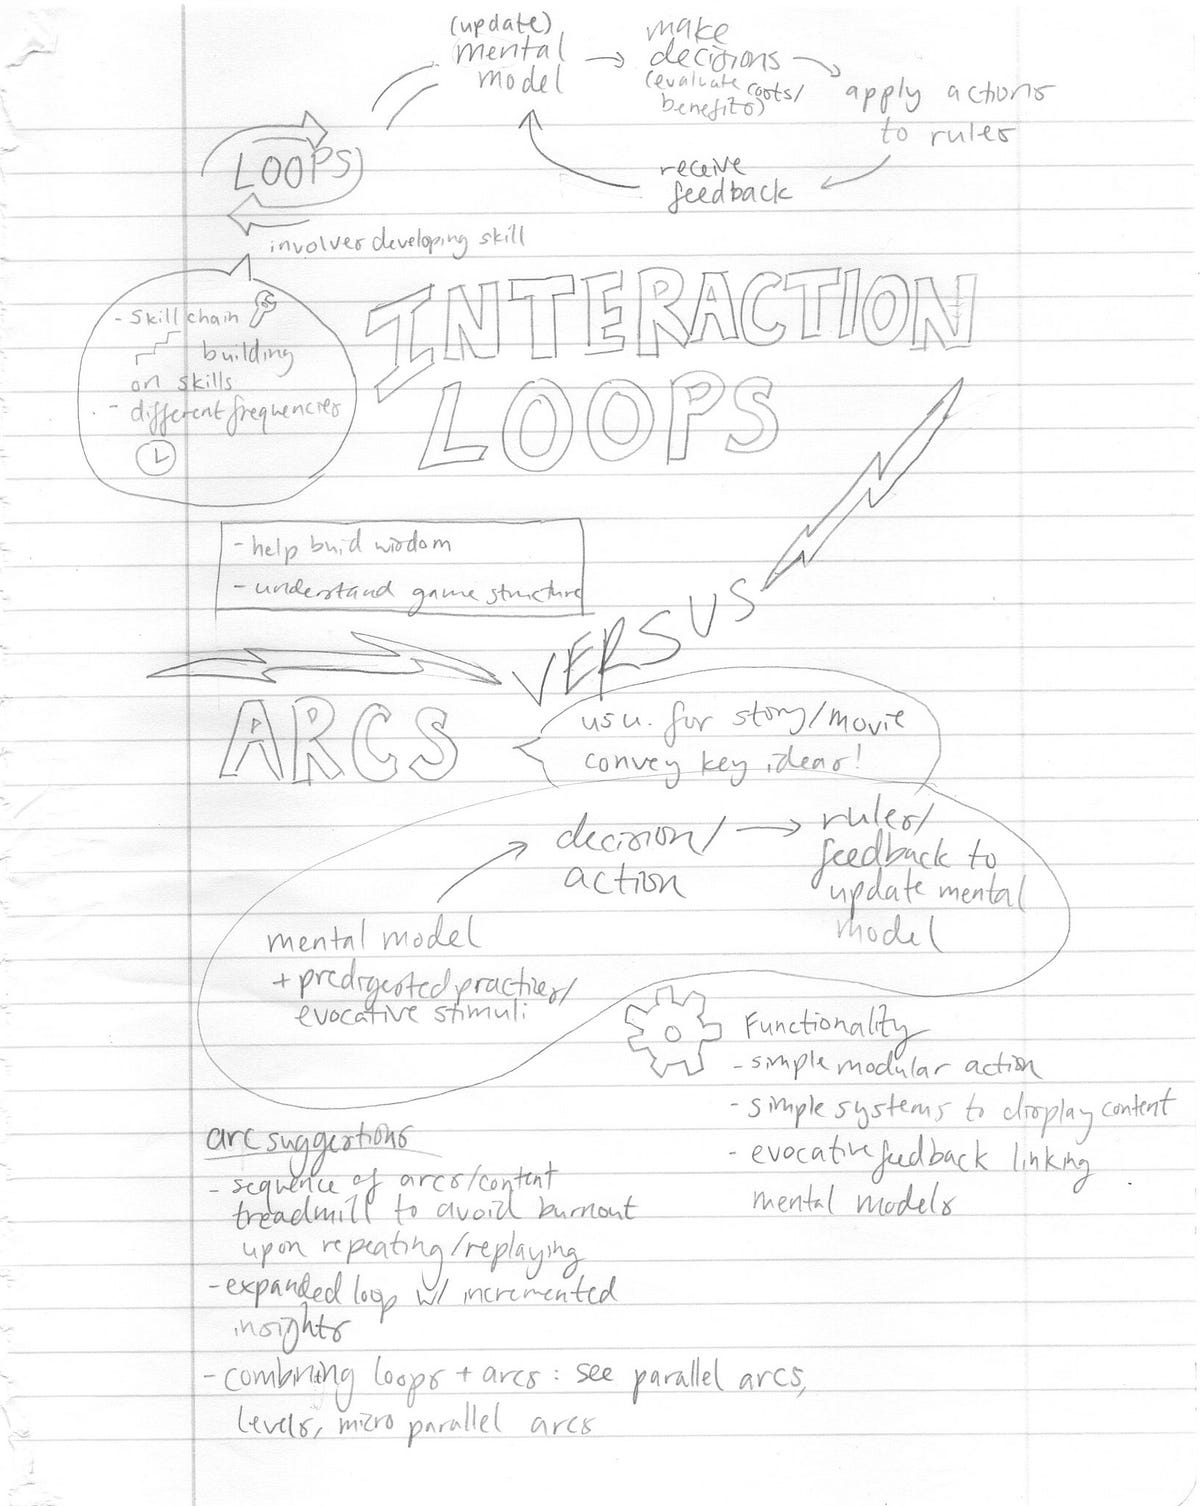 (update)
mental
model
make
decisions
(evaluate costs/
benefits)
apply actions
to rules
receive
feedback
LOOPS
involves developing skill
- skill chain
building
on skills
- different frequencies
INTERACTION
LOOPS
- help build wisdom
- understand game structure
VERSUS
ARCS
usu. for story/movie
convey key ideas!
decision/
action
rules/
feedback to
update mental
model
mental model
+ predigested practices/
evocative stimuli
Functionality
- simple modular action
- simple systems to display content
- evocative feedback linking
mental models
arc suggestions
- sequence of arcs/content
treadmill to avoid burnout
upon repeating/replaying
- expanded loop w/ incremented
insights
- combining loops + arcs: see parallel arcs,
levels, micro parallel arcs